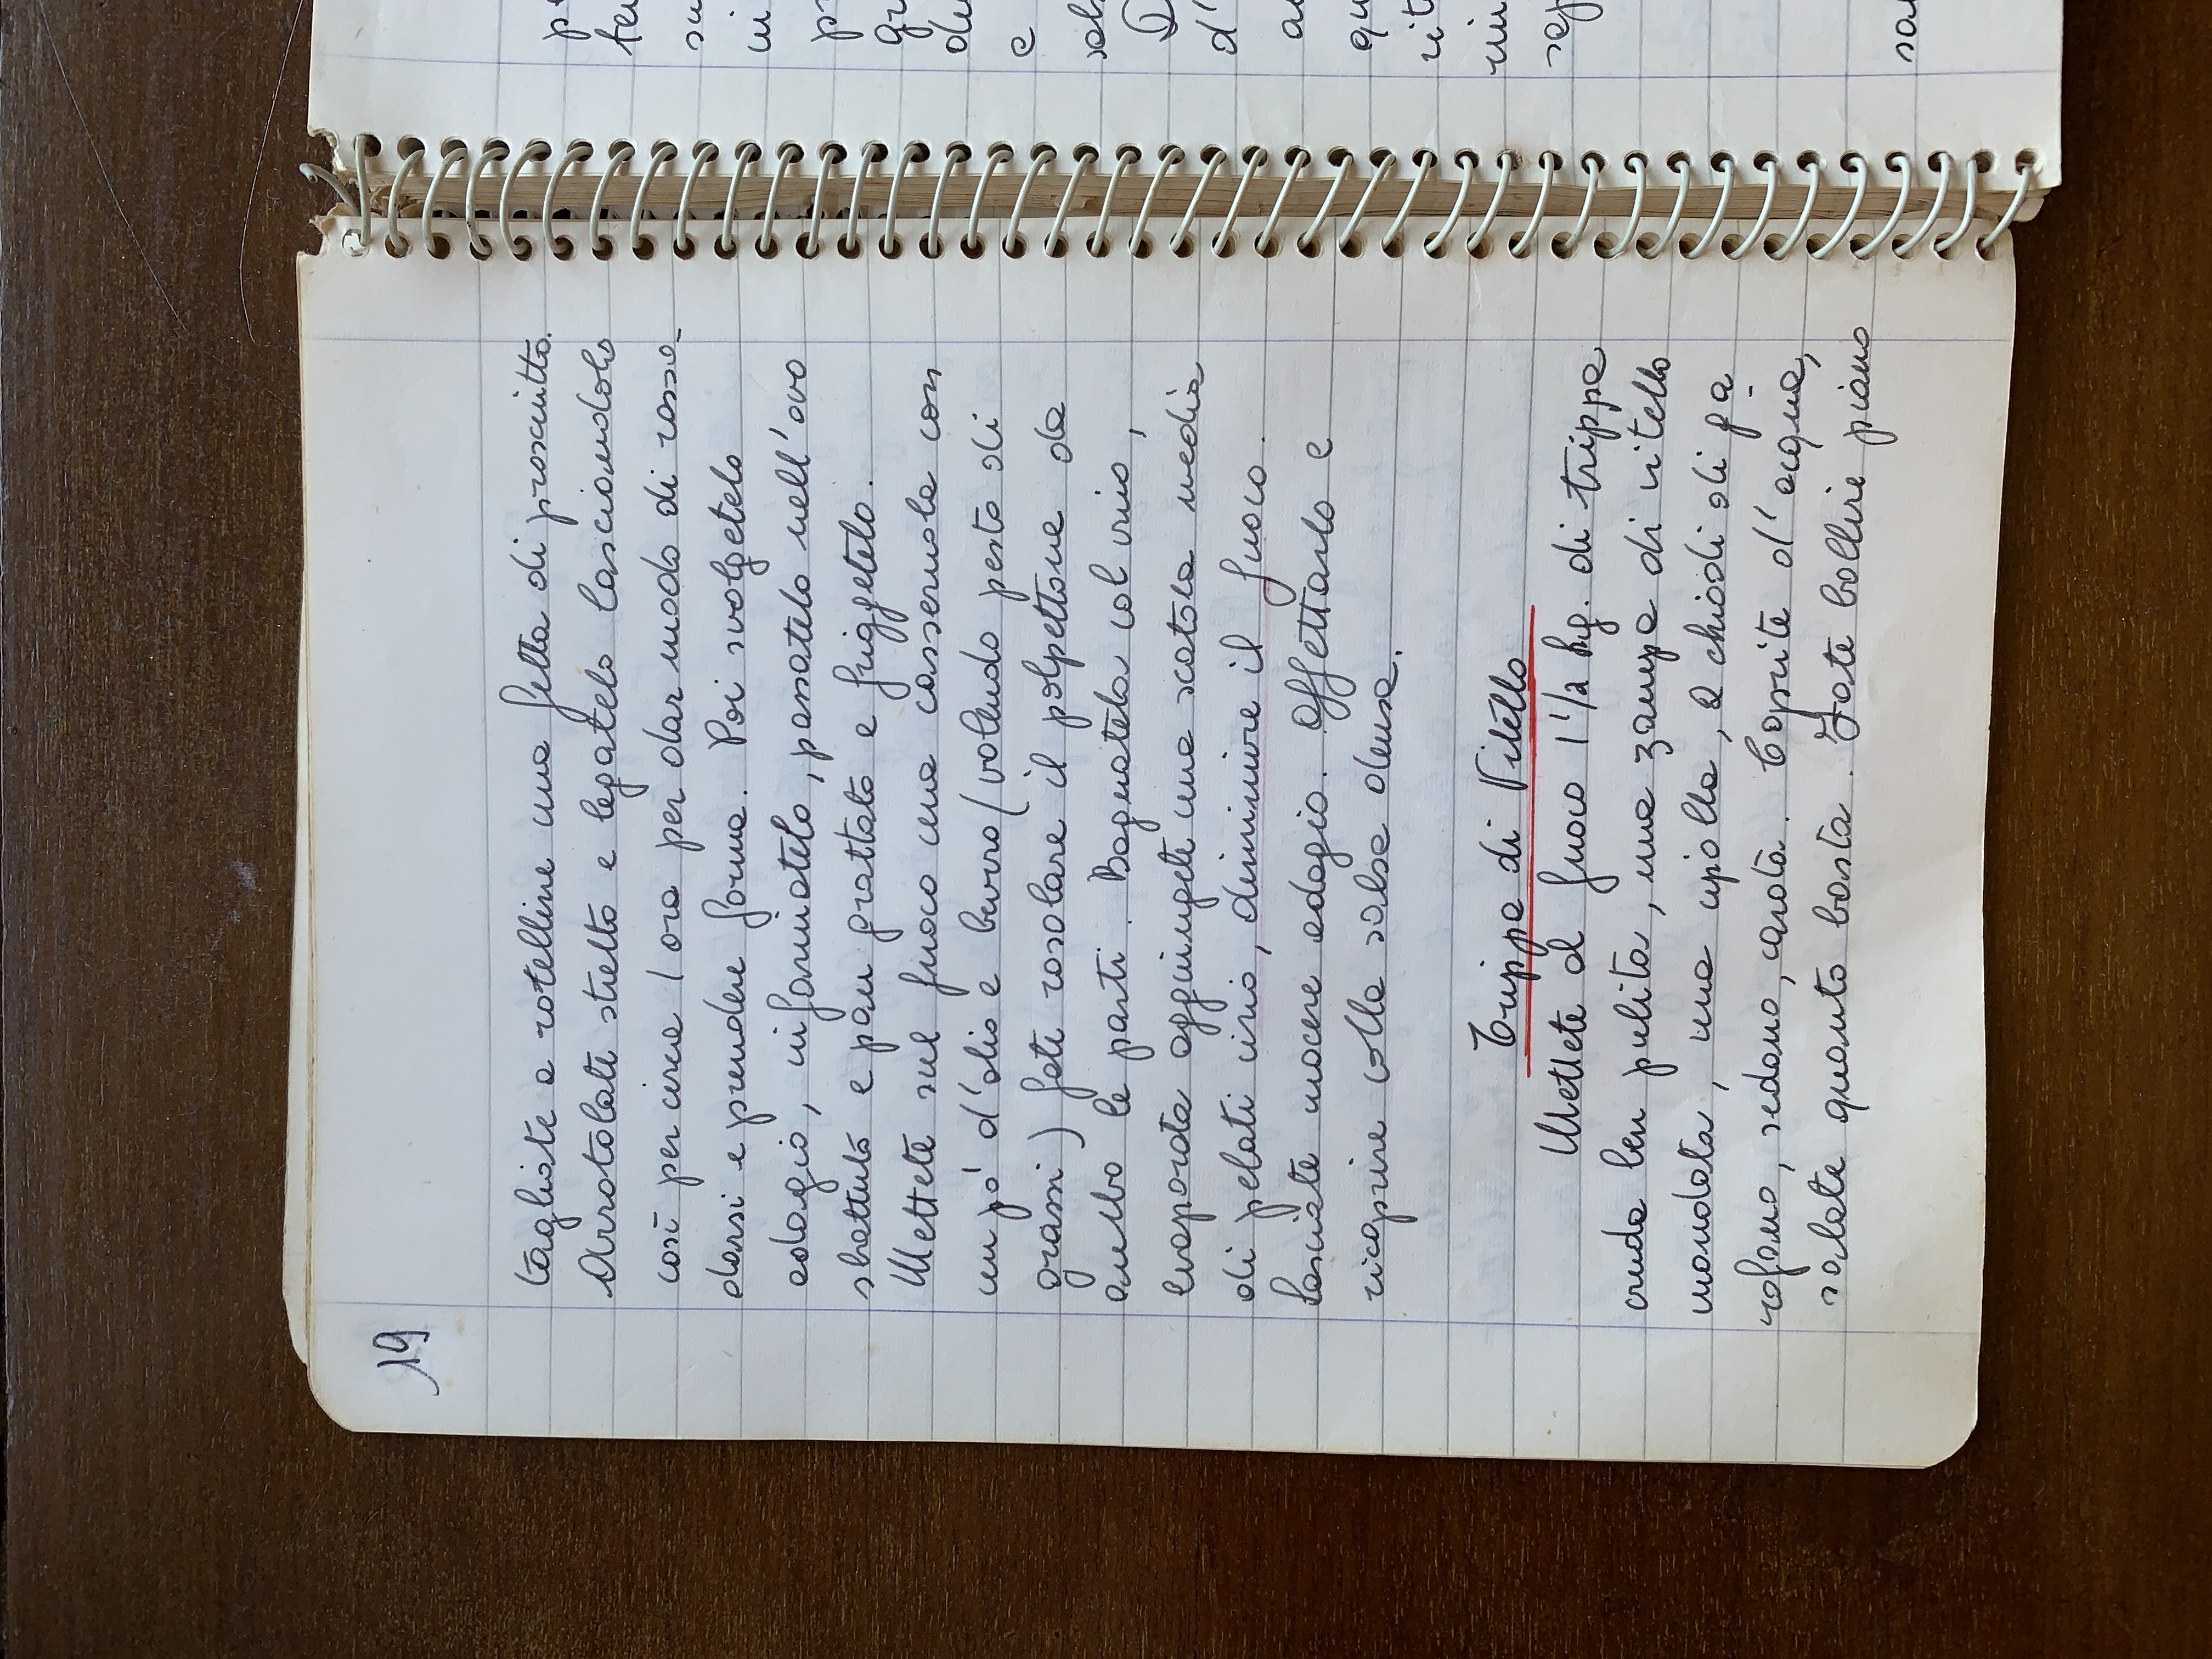 19
tagliate a rotelline una fetta di prosciutto.
Arrotolate stretto e legatelo lasciandolo
così per circa 1 ora per dar modo di rosso-
darsi e prendere forma. Poi svolgetelo
adagio, infarinatelo, passatelo nell'ovo
sbattuto e pan grattato e friggetelo.
Mettete sul fuoco una casseruola con
un pó d'olio e burro (volendo pesto di
grassi) fate rosolare il polpettone da
ambo le parti. Bagnatela col vino,
evaporata aggiungete una scatola media
di pelati cirio, diminuire il fuoco.
Lasciate cuocere adagio. Affettarlo e
ricoprire colla salsa densa.
Trippa di Vitello
Mettete al fuoco 1 1/2 kg. di trippa
cruda ben pulita, una zampa di vitello
mondata, una cipolla, 2 chiodi di ga
rofano, sedano, carota. Coprite d'acqua,
salate quanto basta. Fate bollire piano
pe
su
in
pr
gr
e
sals
D
d'
qu
rit